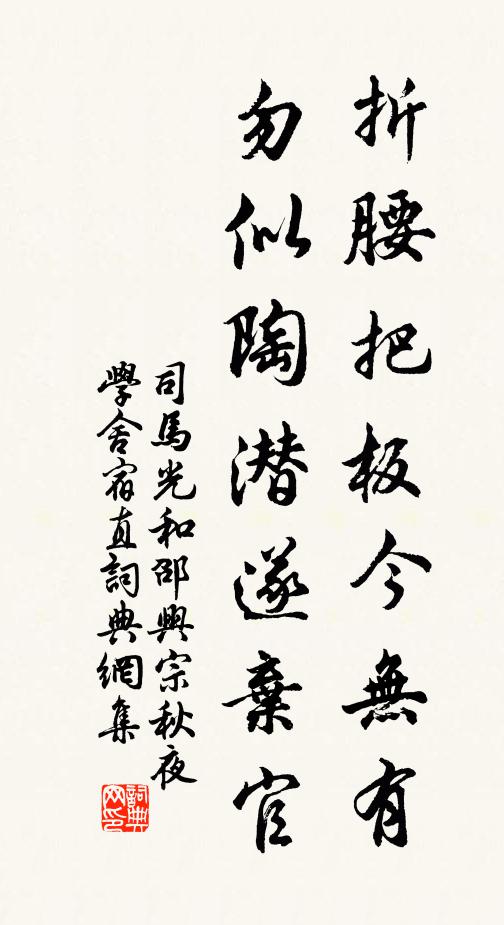 折腰把板今無有
勿似陶潜遂棄官
司馬光和邵興宗秋夜
學舍宿直詞典網集
詞典網印